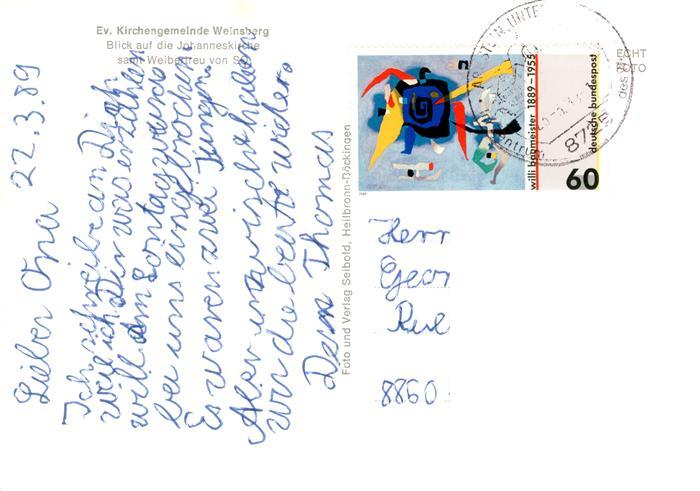 Ev. Kirchengemeinde Weinsberg
Blick auf die Johanneskirche
samt Weibertreu von
22.3.89
Lieber Opa
Ich schreibe an Dich
weil ich Dir was erzählen
will. Am Sonntag wurde
bei uns eingebrochen.
Es waren zwei Jungen.
Aber inzwischt haben
wir die beute wieder.
Dein Thomas
Foto und Verlag Seibold, Heilbronn-Böckingen
ECHT
FOTO
willi baumeister 1889-1955
deutsche bundespost
60
1989
Herr
Geor
8860